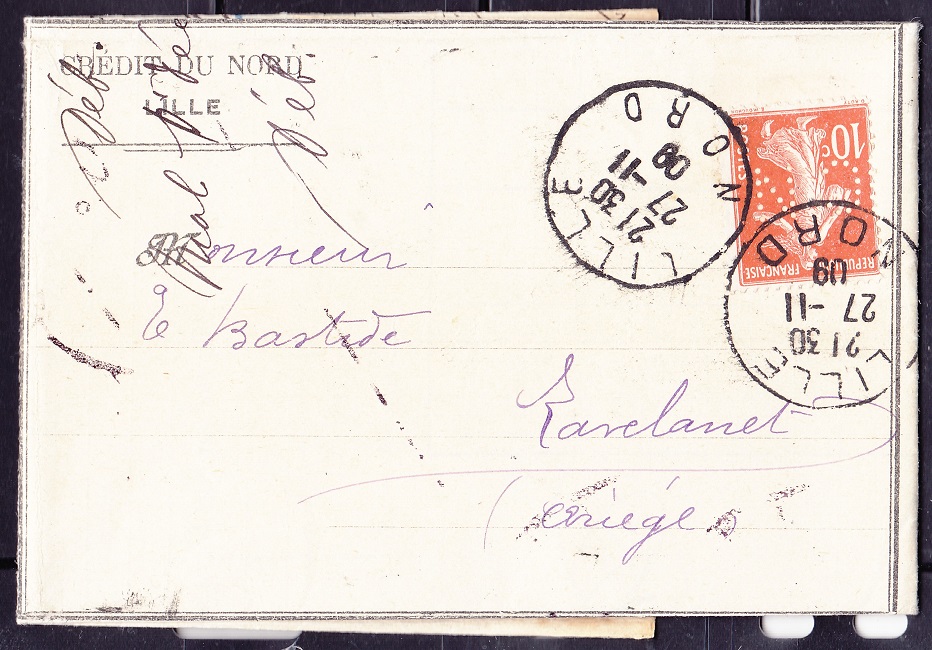 CRÉDIT DU NORD
LILLE
Monsieur
E Bastide
Lavelanet
(Ariège)
LILLE
NORD
21 30
27 - 11
09
LILLE
NORD
21 30
27 - 11
09
10c
POSTES
REPUBLIQUE FRANÇAISE